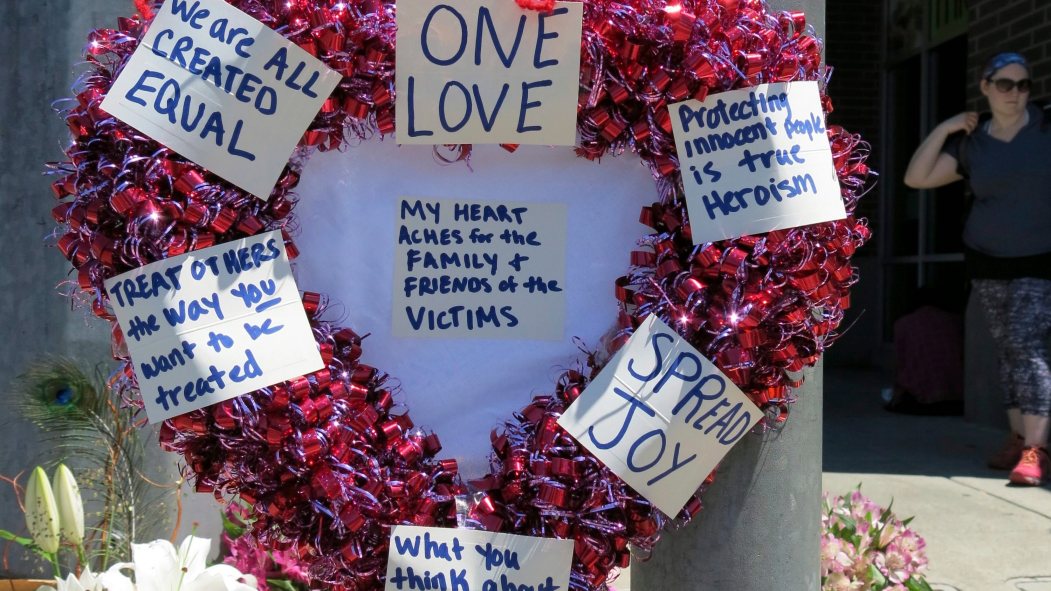 We are ALL
CREATED
EQUAL
ONE
LOVE
Protecting
innocent people
is true
Heroism
MY HEART
ACHES for the
FAMILY +
FRIENDS of the
VICTIMS
TREAT OTHERS
the WAY YOU
want to be
treated
SPREAD
JOY
What you
think about